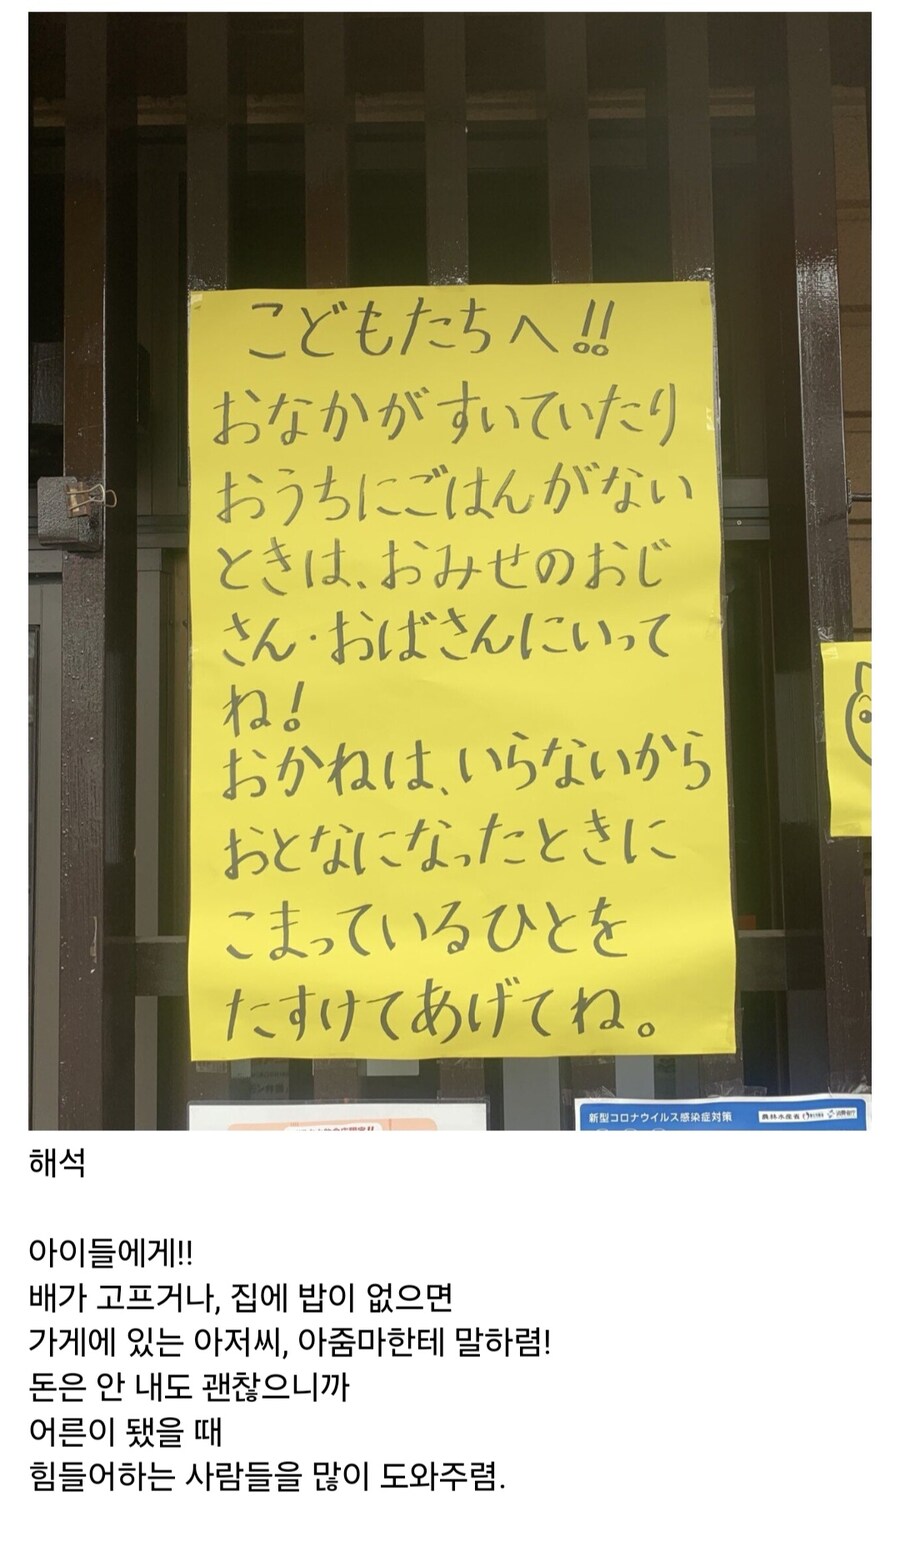 こどもたちへ!!
おなかがすいていたり
おうちにごはんがない
ときは、おみせのおじ
さん・おばさんにいって
ね!
おかねは、いらないから
おとなになったときに
こまっているひとを
たすけてあげてね。
新型コロナウイルス感染症対策
農林水産省
해석
아이들에게!!
배가 고프거나, 집에 밥이 없으면
가게에 있는 아저씨, 아줌마한테 말하렴!
돈은 안 내도 괜찮으니까
어른이 됐을 때
힘들어하는 사람들을 많이 도와주렴.